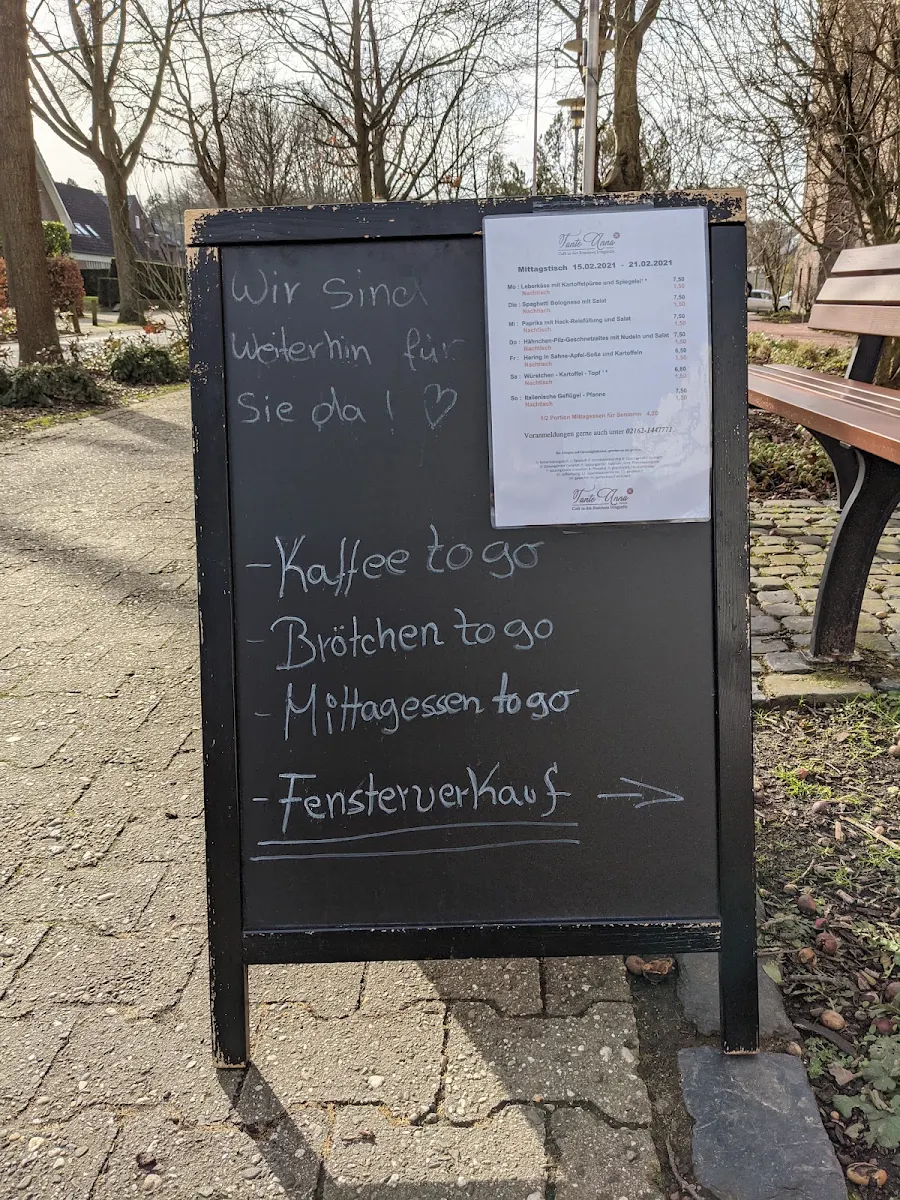 Wir sind
weiterhin für
Sie da! ♡
Tante Anna
Mittagstisch 15.02.2021 - 21.02.2021
Mo : Leberkäse mit Kartoffelpüree und Spiegelei 7,50
Nachtisch 1,50
Die : Spaghetti Bolognese mit Salat 7,50
Nachtisch 1,50
Mi : Paprika mit Hack-Reisfüllung und Salat 7,50
Nachtisch 1,50
Do : Hähnchen-Pilz-Geschnetzeltes mit Nudeln und Salat 7,50
Nachtisch 1,50
Fr : Hering in Sahne-Apfel-Soße und Kartoffeln 6,50
Nachtisch 1,50
Sa : Würstchen - Kartoffel - Topf 6,80
Nachtisch 1,50
So : Italienische Geflügel - Pfanne 7,50
Nachtisch 1,50
1/2 Portion Mittagessen für Senioren 4,50
Voranmeldungen gerne auch unter 02162-1447771
Tante Anna
- Kaffee to go
- Brötchen to go
- Mittagessen to go
- Fensterverkauf →